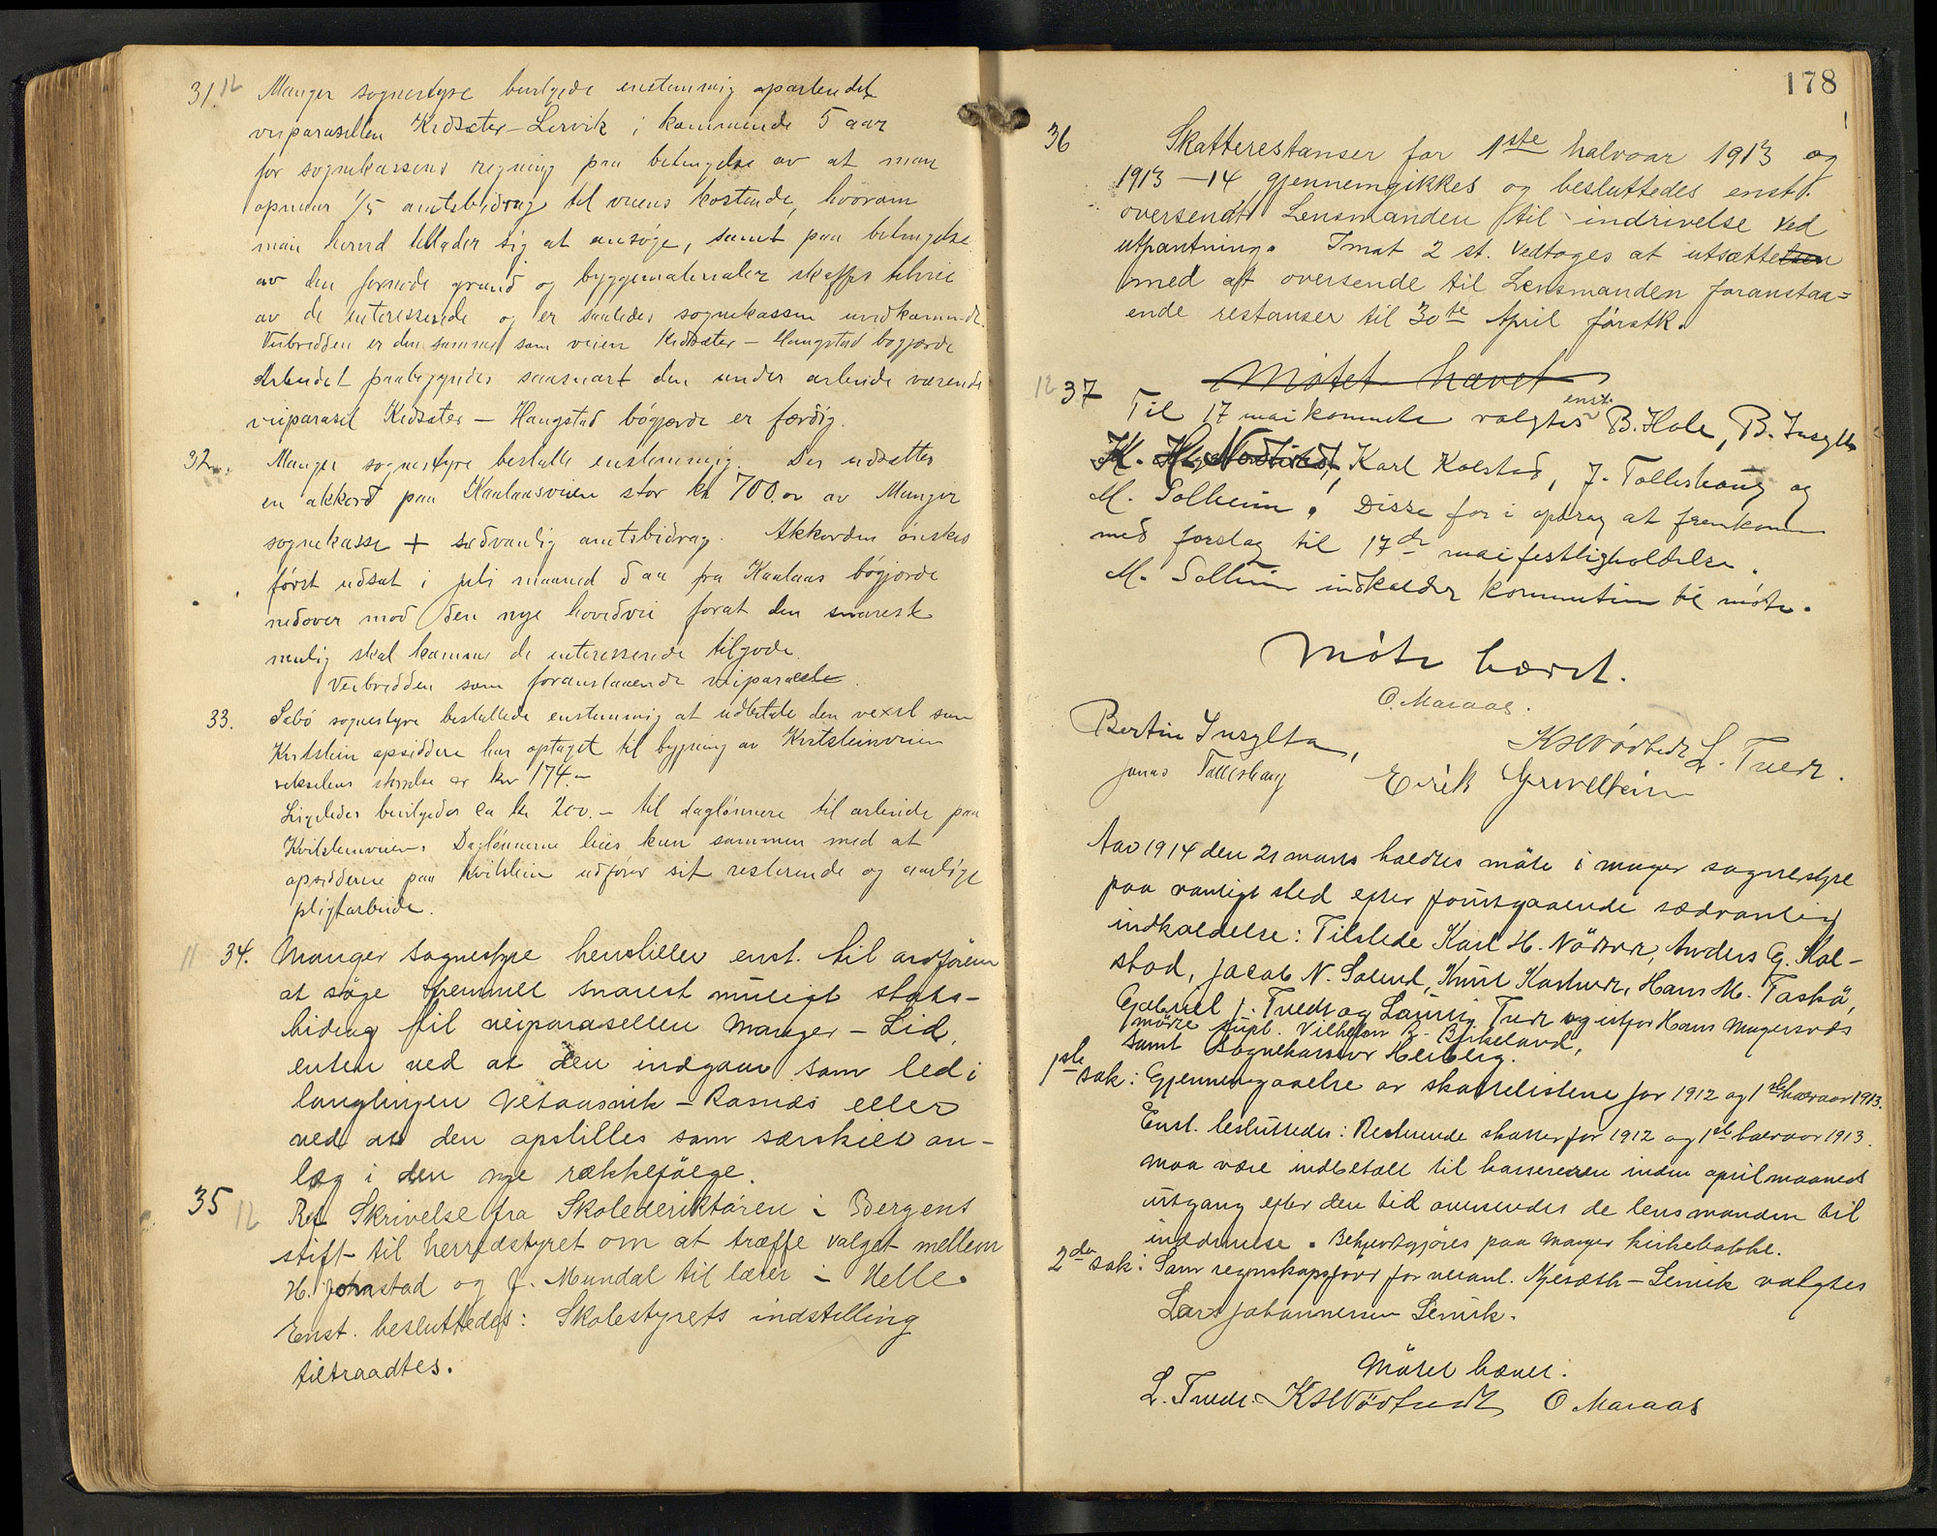 31. 12 Manger sognestyre bevilgede enstemmig oparbeidet
veiparasellen Kidsæter - Lervik i kommende 5 aar
for sognekassens regning paa betingelse av at man
opnaar 1/5 amtsbidrag til veiens kostende, hvorom
man herved tillader sig at ansøge, samt paa betingelse
av den fornøde grund og byggematerialer skaffes tilveie
av de interesserede og er saaledes sognekassen uvedkommende.
Veibredden er den samme som veien Kidsæter - Haugstad bøgjærde
Arbeidet paabegyndes saasnart den under arbeide værende
veiparasel Kidsæter - Haugstad bøgjærde er færdig.
32. Manger sognestyre beslutte enstemmig. Der udsættes
en akkord paa Kaalaasveien stor kr 700.00 av Manger
sognekasse + sædvanlig amtsbidrag. Akkorden ønskes
først udsat i juli maaned d aa fra Kaalaas bøgjærde
nedover mod den nye hovedvei forat den snarest
mulig skal komme de interesserede tilgode.
Veibredden som foranstaaende veiparselle.
33. Sæbø sognestyre besluttede enstemmig at udbetale den vexel som
Kvitstein opsiddere har optaget til bygning av Kvitsteinveien
vekselens størrelse er kr 174.-
Ligeledes bevilgedes ca kr 200.- til daglønnere til arbeide paa
Kvitsteinveien. Dagløunerne leies kun sammen med at
opsidderne paa Kvitstein udfører sit resterende og aarlige
pligtarbeide.
11 34. Manger sognestyre henstiller enst. til ordføreren
at søge fremmet snarest muligt stats-
bidrag til veiparasellen Manger - Lid,
enten ved at den indgaar som led i
langlinjen Vetaasvik - Rasnæs eller
ved at den opstilles som særskilt an-
læg i den nye rækkefølge.
35 12 Ref Skrivelse fra Skolederiktøren i Bergens
stift til herredstyret om at træffe valget mellem
H. Johnstad og J. Mundal til lærer i Helle.
Enst. besluttedes: Skolestyrets indstilling
tiltraadtes.
178
36 Skatterestanser for 1ste halvaar 1913 og
1913 - 14 gjennemgikkes og besluttedes enst.
oversendt Lensmanden til indrivelse ved
utpantning. Imot 2 st. vedtoges at utsætte
med at oversende til Lensmanden foranstaa=
ende restanser til 30te April førstk.
Møtet hævet
12 37 Til 17 mai komite valgtes enst. B. Hole, B. Insylta
Karl Kolstad, J. Tolleshaug og
M. Solheim. Disse for i opdrag at fremkomme
med forslag til 17de mai festligholdelse.
M. Solheim indkalder komiteen til møte.
Møte hævet.
O. Maraas.
Bertin Insylta, KHNørtvedt L. Tvedt.
Jonas Tolleshaug Eirik Grvellein
Aar 1914 den 21 mars holdtes møte i Manger sognestyre
paa vanligt sted efter forutgaaende sædvanlig
indkaldelse: Tilstede Karl H. Nörtvedt, Anders G. Kol-
stad, Jacob N. Solend, Knut Kartveit, Hans M. Toskå,
Gabriel J. Tvedt og Lauriz Tvedt og istfor Hans Mangersnæs
møtte supl. Vilhelm B. Birkeland,
samt sognekasserer Heiberg.
1ste sak: Gjennemgaaelse av skattelistene for 1912 og 1ste halvaar 1913.
Enst. besluttedes: Resterende skatter for 1912 og 1ste halvaar 1913.
maa være indbetalt til kassereren inden april maaneds
utgang efter den tid oversendes de lensmanden til
inddrivelse. Bekjendtgjøres paa Manger kirkebakke.
2den sak: Som regnskapsfører for veianl. Njesæth - Lervik valgtes
Lars Johannessen Lervik.
Møtet hævet.
L. Tvedt. KHNørtvedt O Maraas